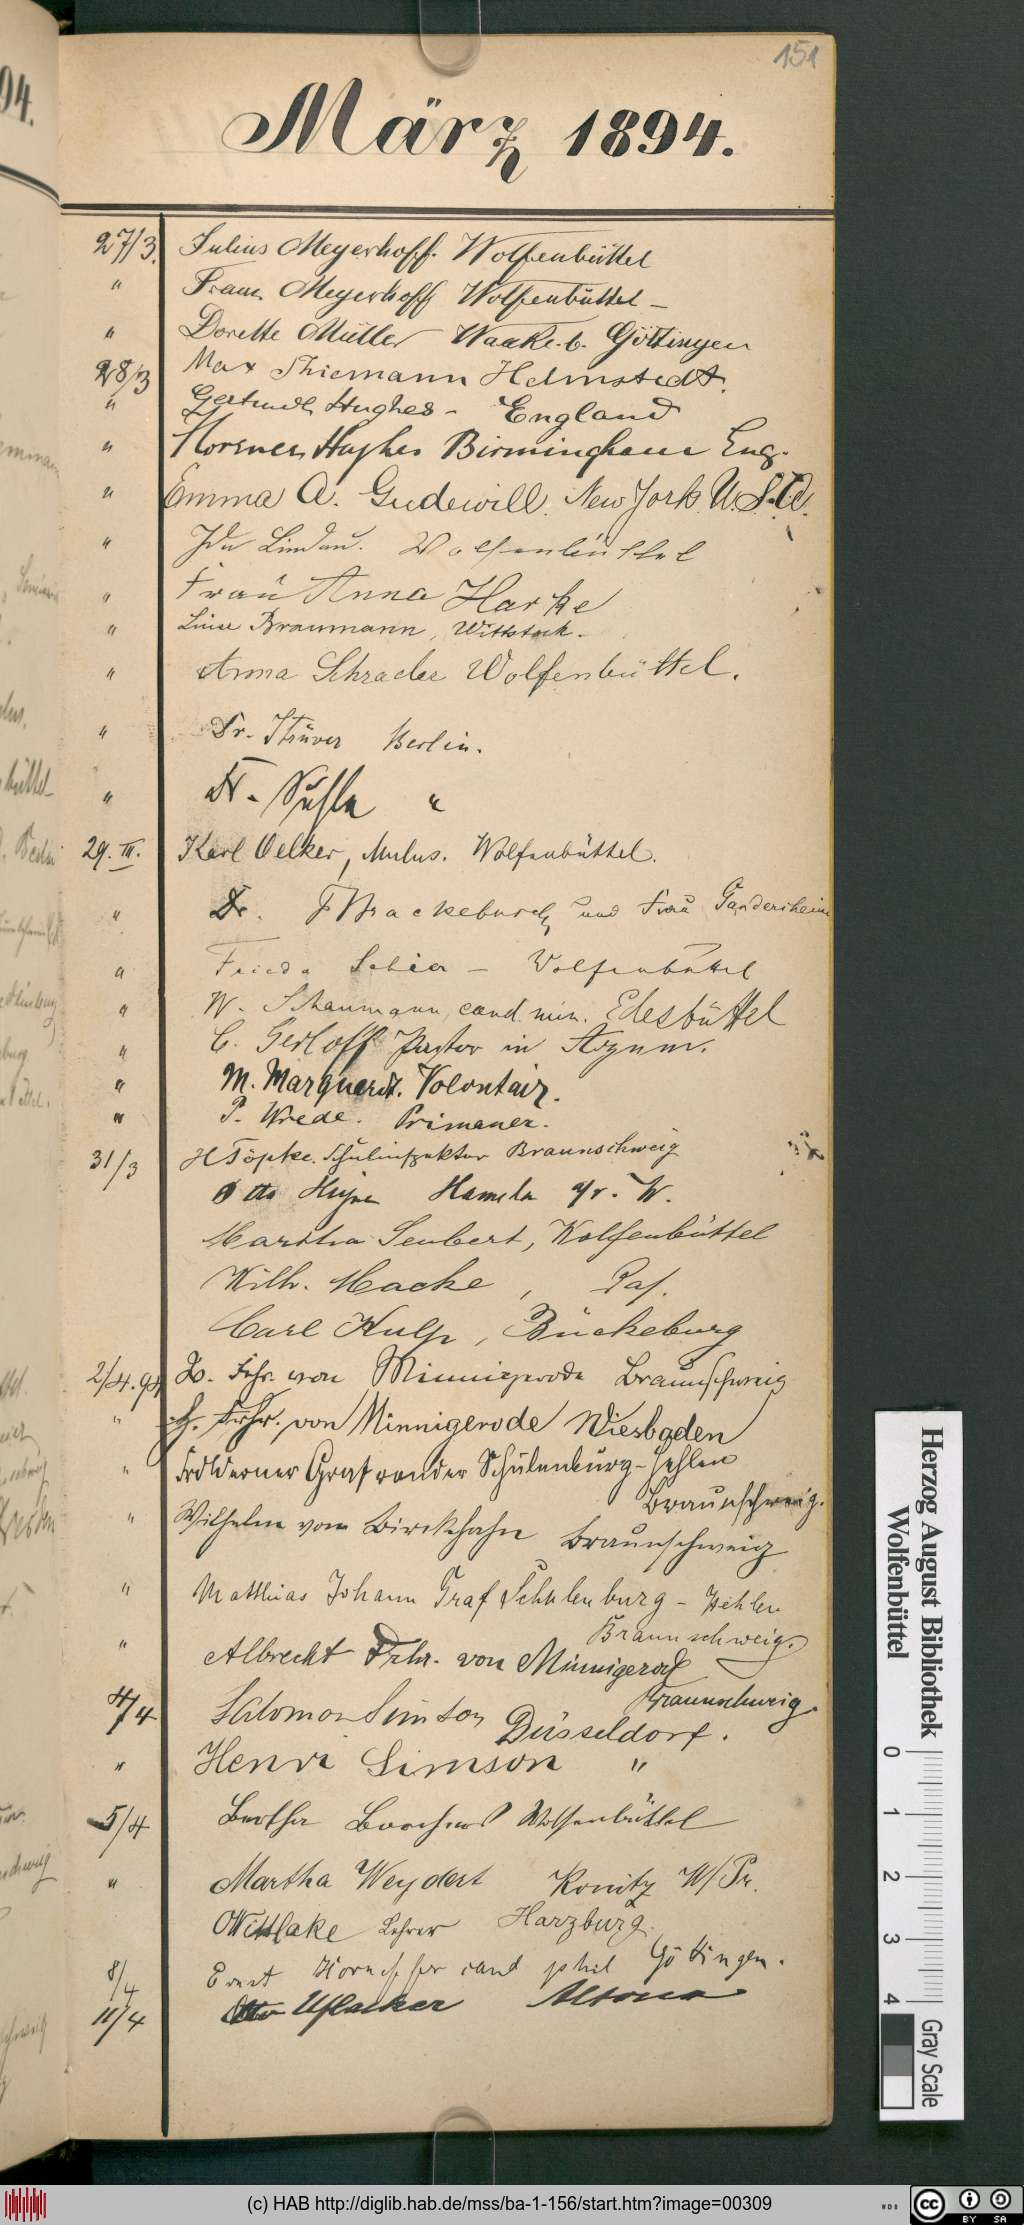 151
März 1894.
27/3. Julius Meyerhoff. Wolfenbüttel
" Franz Meyerhoff Wolfenbüttel –
" Dorette Müller Waake. b. Göttingen
28/3 Max Thiemann Helmstedt.
" Gertrude Hughes – England
" Florence Hughes Birmingham Eng.
" Emma A. Gudewill. New York U.S.A.
" Ida Lindau. Wolfenbüttel
" Frau Anna Harke
" Line Braumann, Wittstock.
" Anna Schrader Wolfenbüttel.
" Dr. Strüver Berlin.
" Dr. Suhle "
29. III. Karl Oelker, Mulus. Wolfenbüttel.
" Dr. F Brackebusch und Frau Gandersheim
" Frieda – Wolfenbüttel
" W. Schaumann, cand. min. Edesbüttel
" C. Gerloff Pastor in
" M. Marquardt. Volontair.
" P. Wrede. Primaner.
31/3 H Töpke. Schulinspektor Braunschweig
Otto Hameln a/d. W.
Martha Seubert, Wolfenbüttel
Wilh. Macke,
Carl Kulp, Bückeburg
2/4.94 Frhr. von Minnigerode Braunschweig
" Frhr. von Minnigerode Wiesbaden
" Werner Graf von der Schulenburg-Hehlen
Braunschweig.
" Wilhelm vom Birckhahn Braunschweig
" Matthias Johann Graf Schulenburg – Hehlen
Braunschweig.
" Albrecht Frhr. von Minnigerode
Braunschweig.
4/4 Salomon Simson Düsseldorf.
" Henri Simson "
5/4 Bertha Wolfenbüttel
" Martha Weydert Konitz W/Pr.
O Witthake Lehrer Harzburg.
8/4 Ernst Horneffer cand phil Göttingen.
11/4 Otto Uflacker Altona
Herzog August Bibliothek
Wolfenbüttel
0 1 2 3 4
Gray Scale
(c) HAB http://diglib.hab.de/mss/ba-1-156/start.htm?image=00309
WDB
cc BY SA